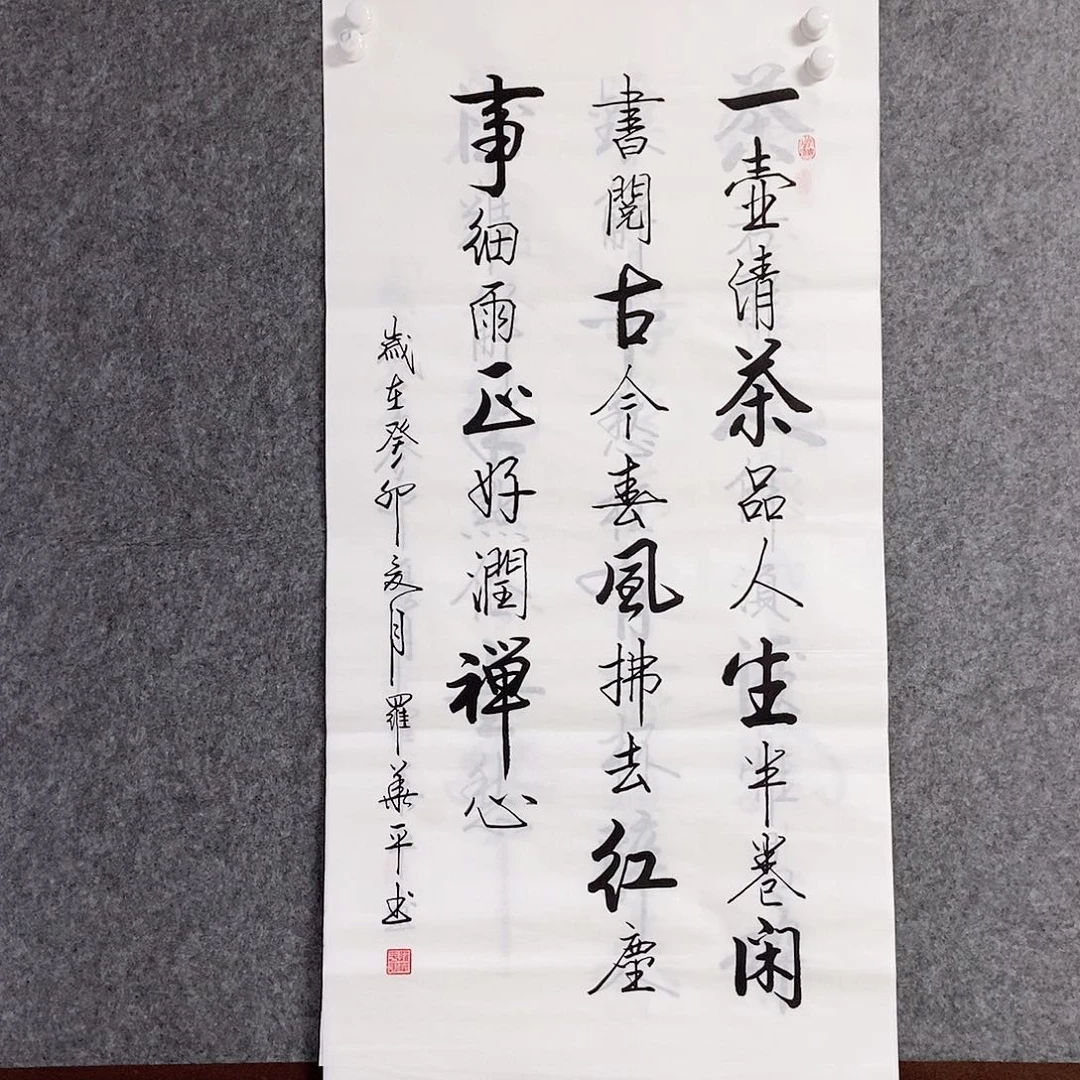 一壶清茶品人生半卷闲
書閱古今春風拂去红塵
事细雨正好潤禅心
歲在癸卯夏月羅華平书